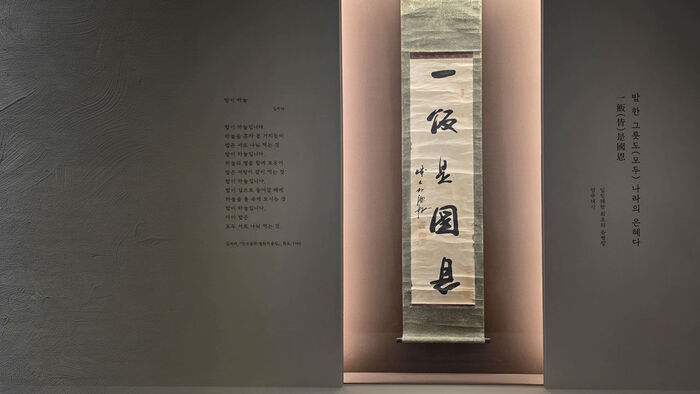 밥이 하늘
김지하
밥이 하늘입니다.
하늘을 혼자 못 가지듯이
밥은 서로 나눠 먹는 것
밥이 하늘입니다.
하늘의 별을 함께 보듯이
밥은 여럿이 같이 먹는 것
밥이 하늘입니다.
밥이 입으로 들어갈 때에
하늘을 몸 속에 모시는 것
밥이 하늘입니다.
아아 밥은
모두 서로 나눠 먹는 것.
김지하, 1984
一飯是國恩
밥 한 그릇도(모두) 나라의 은혜다
一飯(皆)是國恩
임진왜란 최초의 승병장
영규대사